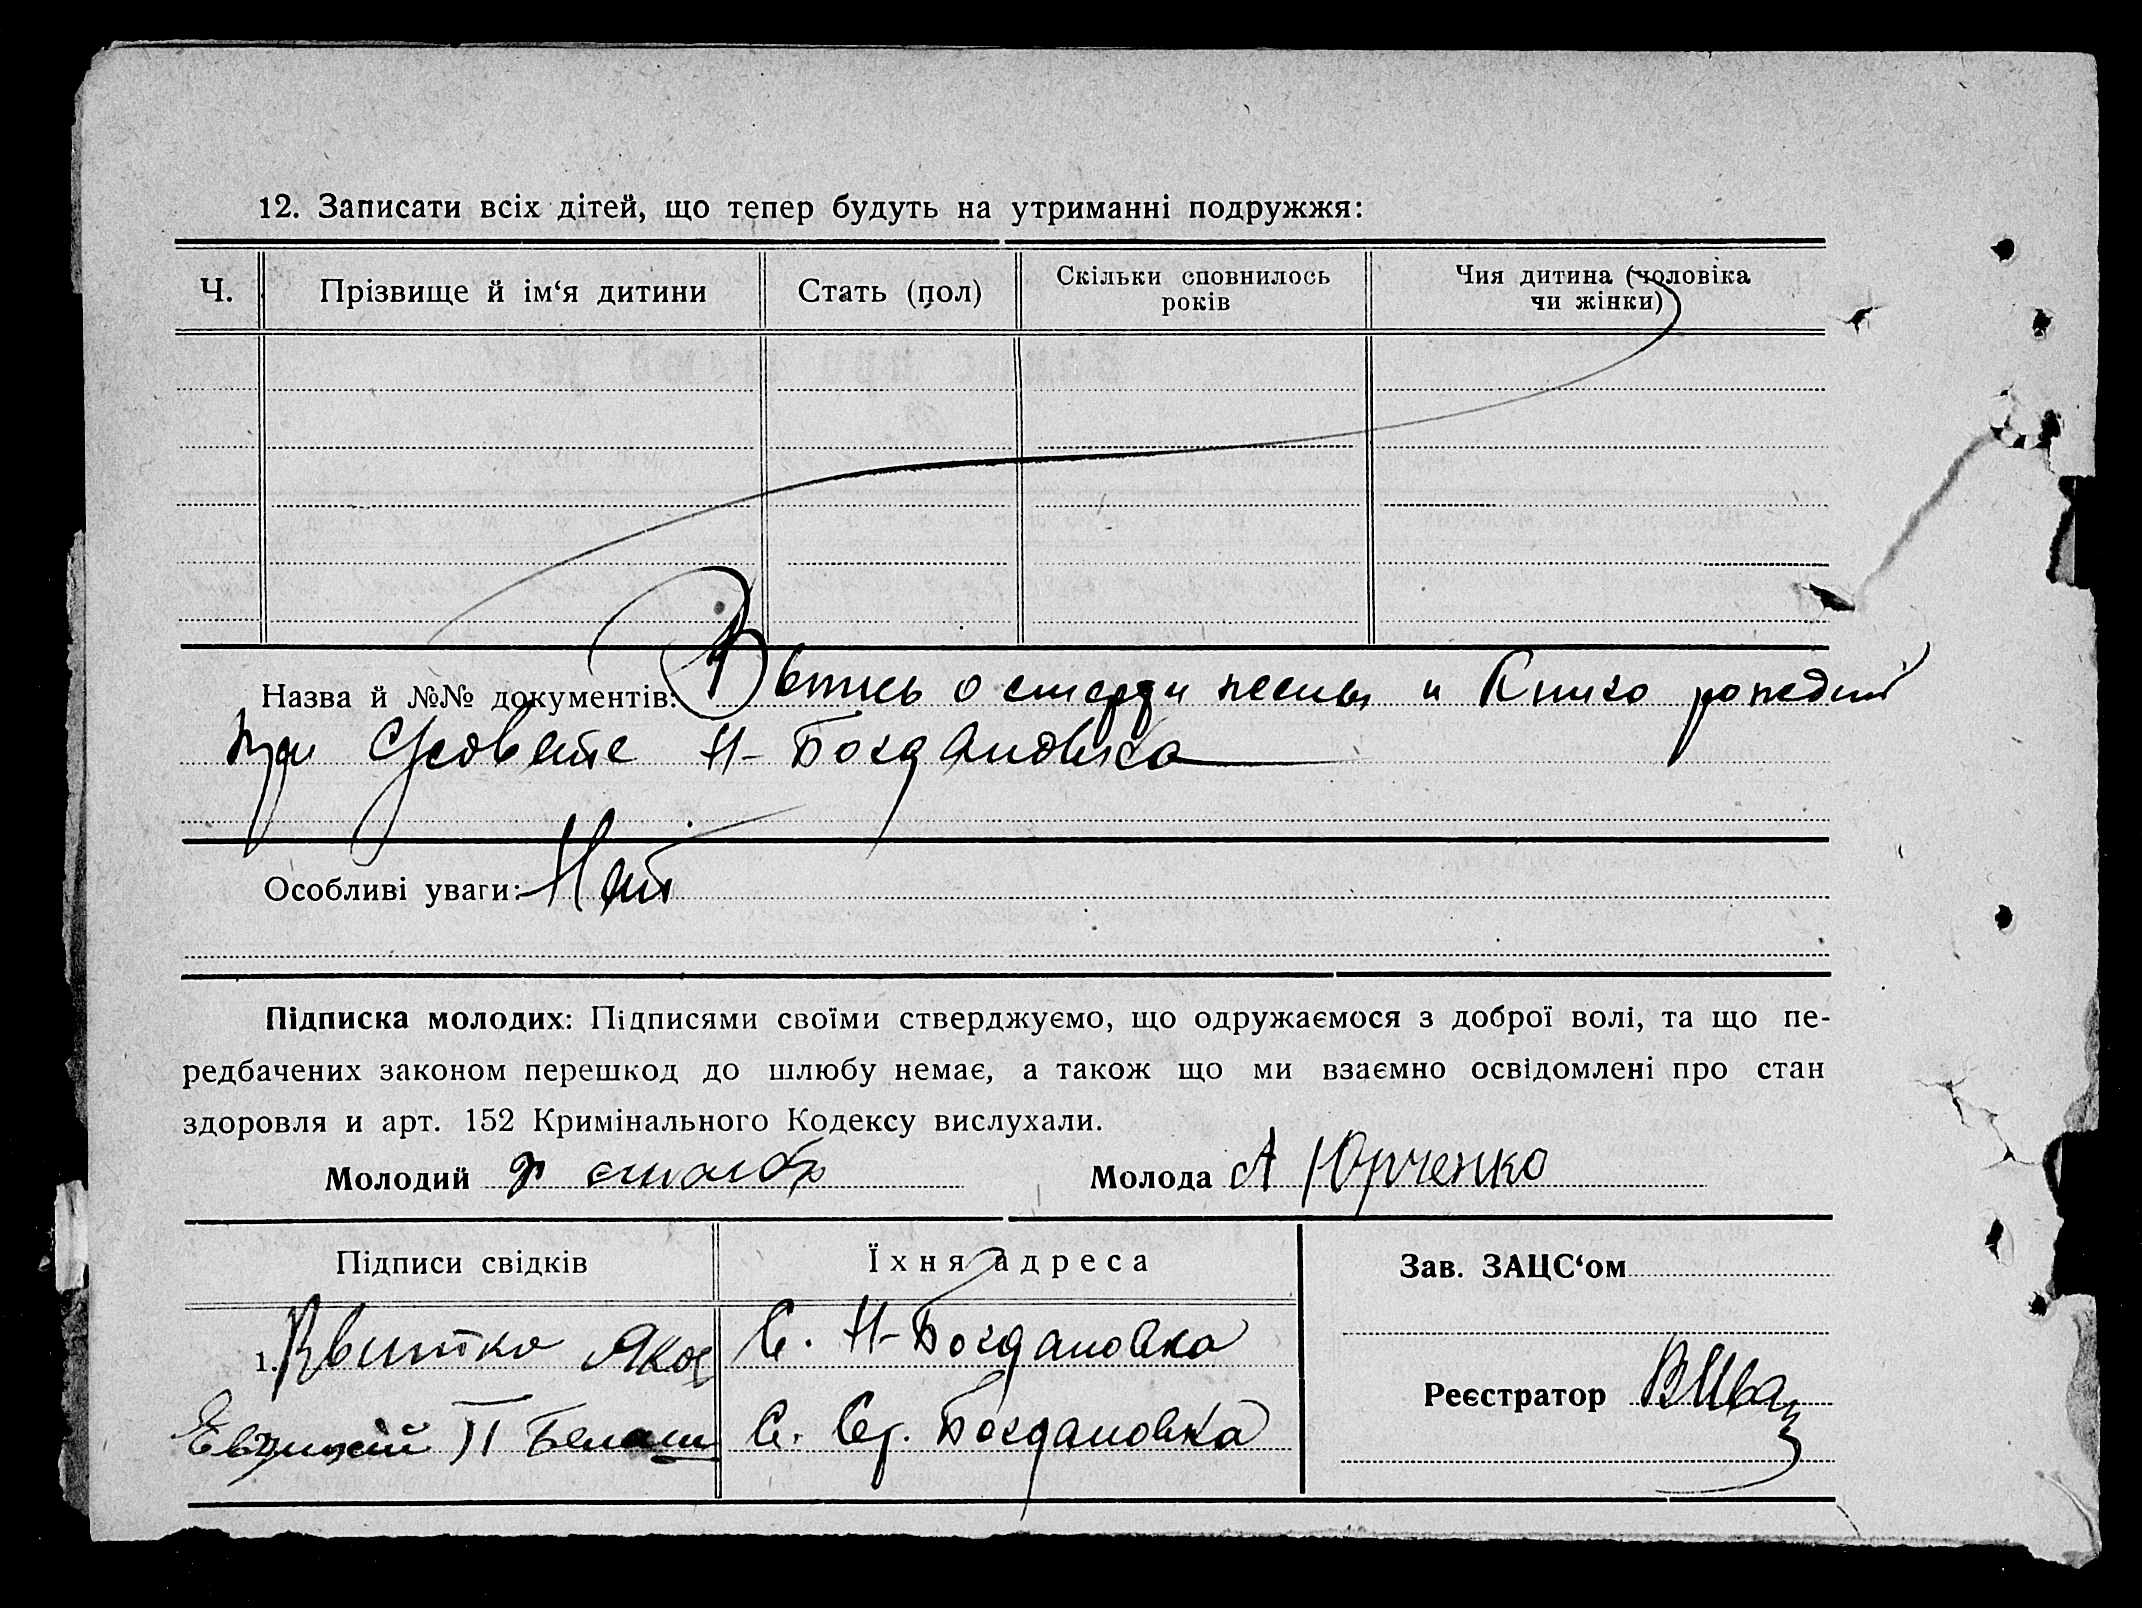 12. Записати всіх дітей, що тепер будуть на утриманні подружжя:
Ч. Прізвище й ім‘я дитини Стать (пол) Скільки сповнилось років Чия дитина (чоловіка чи жінки)
Назва й №№ документів: о смерди и рождений
при Н-Богдановка
Особливі уваги: Нет
Підписка молодих: Підписями своїми стверджуємо, що одружаємося з доброї волі, та що пе-
редбачених законом перешкод до шлюбу немає, а також що ми взаємно освідомлені про стан
здоровля и арт. 152 Кримінального Кодексу вислухали.
Молодий Молода А Юрченко
Підписи свідків Їхня адреса Зав. ЗАЦС‘ом
1. Квитко Яков С. Н-Богдановка
Реєстратор
П Белаш С. Ср. Богдановка